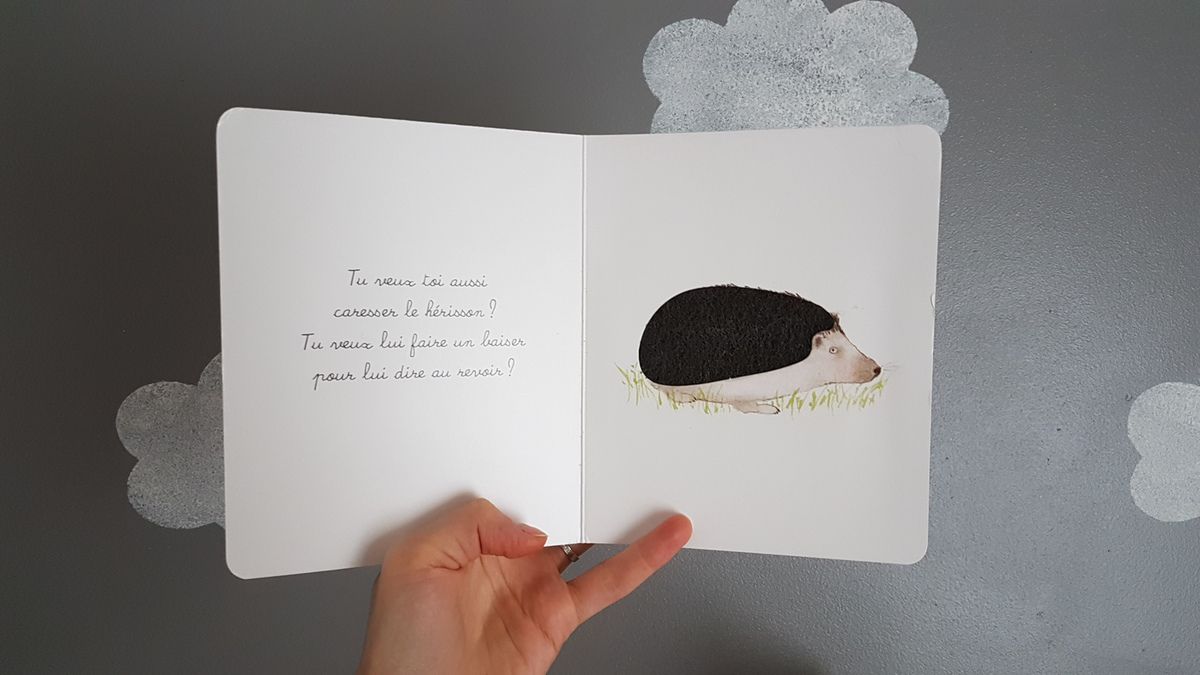 Tu veux toi aussi
caresser le hérisson ?
Tu veux lui faire un baiser
pour lui dire au revoir ?